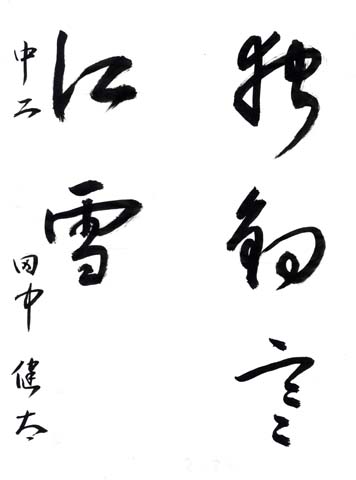 独釣寒
江雪
中二 田中健太